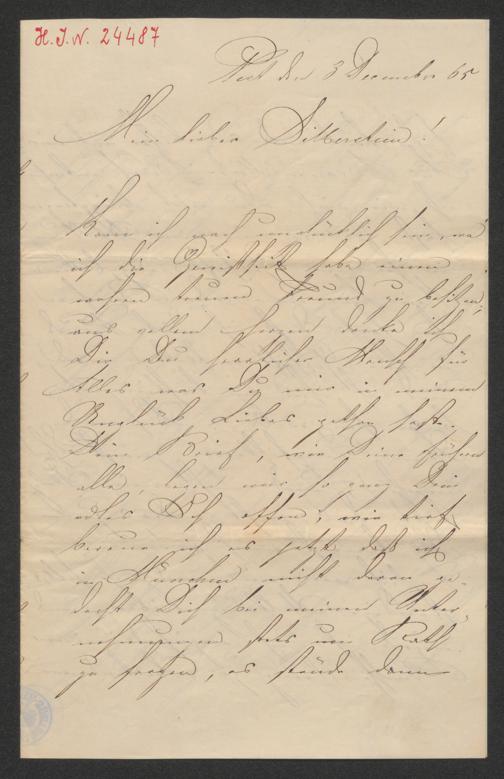 H. I. N. 24487
Pest den 3 December 65
Mein lieber Silberstein!
Kann ich noch unglücklich sein, wo
ich die Gewißheit habe einen
wahren treuen Freund zu besitzen,
aus vollem Herzen danke ich
Dir Du herrlicher Mensch für
Alles was Du mir in meinem
Unglück Liebes gethan hast.
Dein Brief, wie Deine frühern
alle, legen mir so ganz Dein
edles Ich offen, wie tief
bereue ich es jetzt daß ich
in München nicht daran ge
dacht Dich bei meinen Unter
nehmungen stets um Rath
zu fragen, es stünde dann